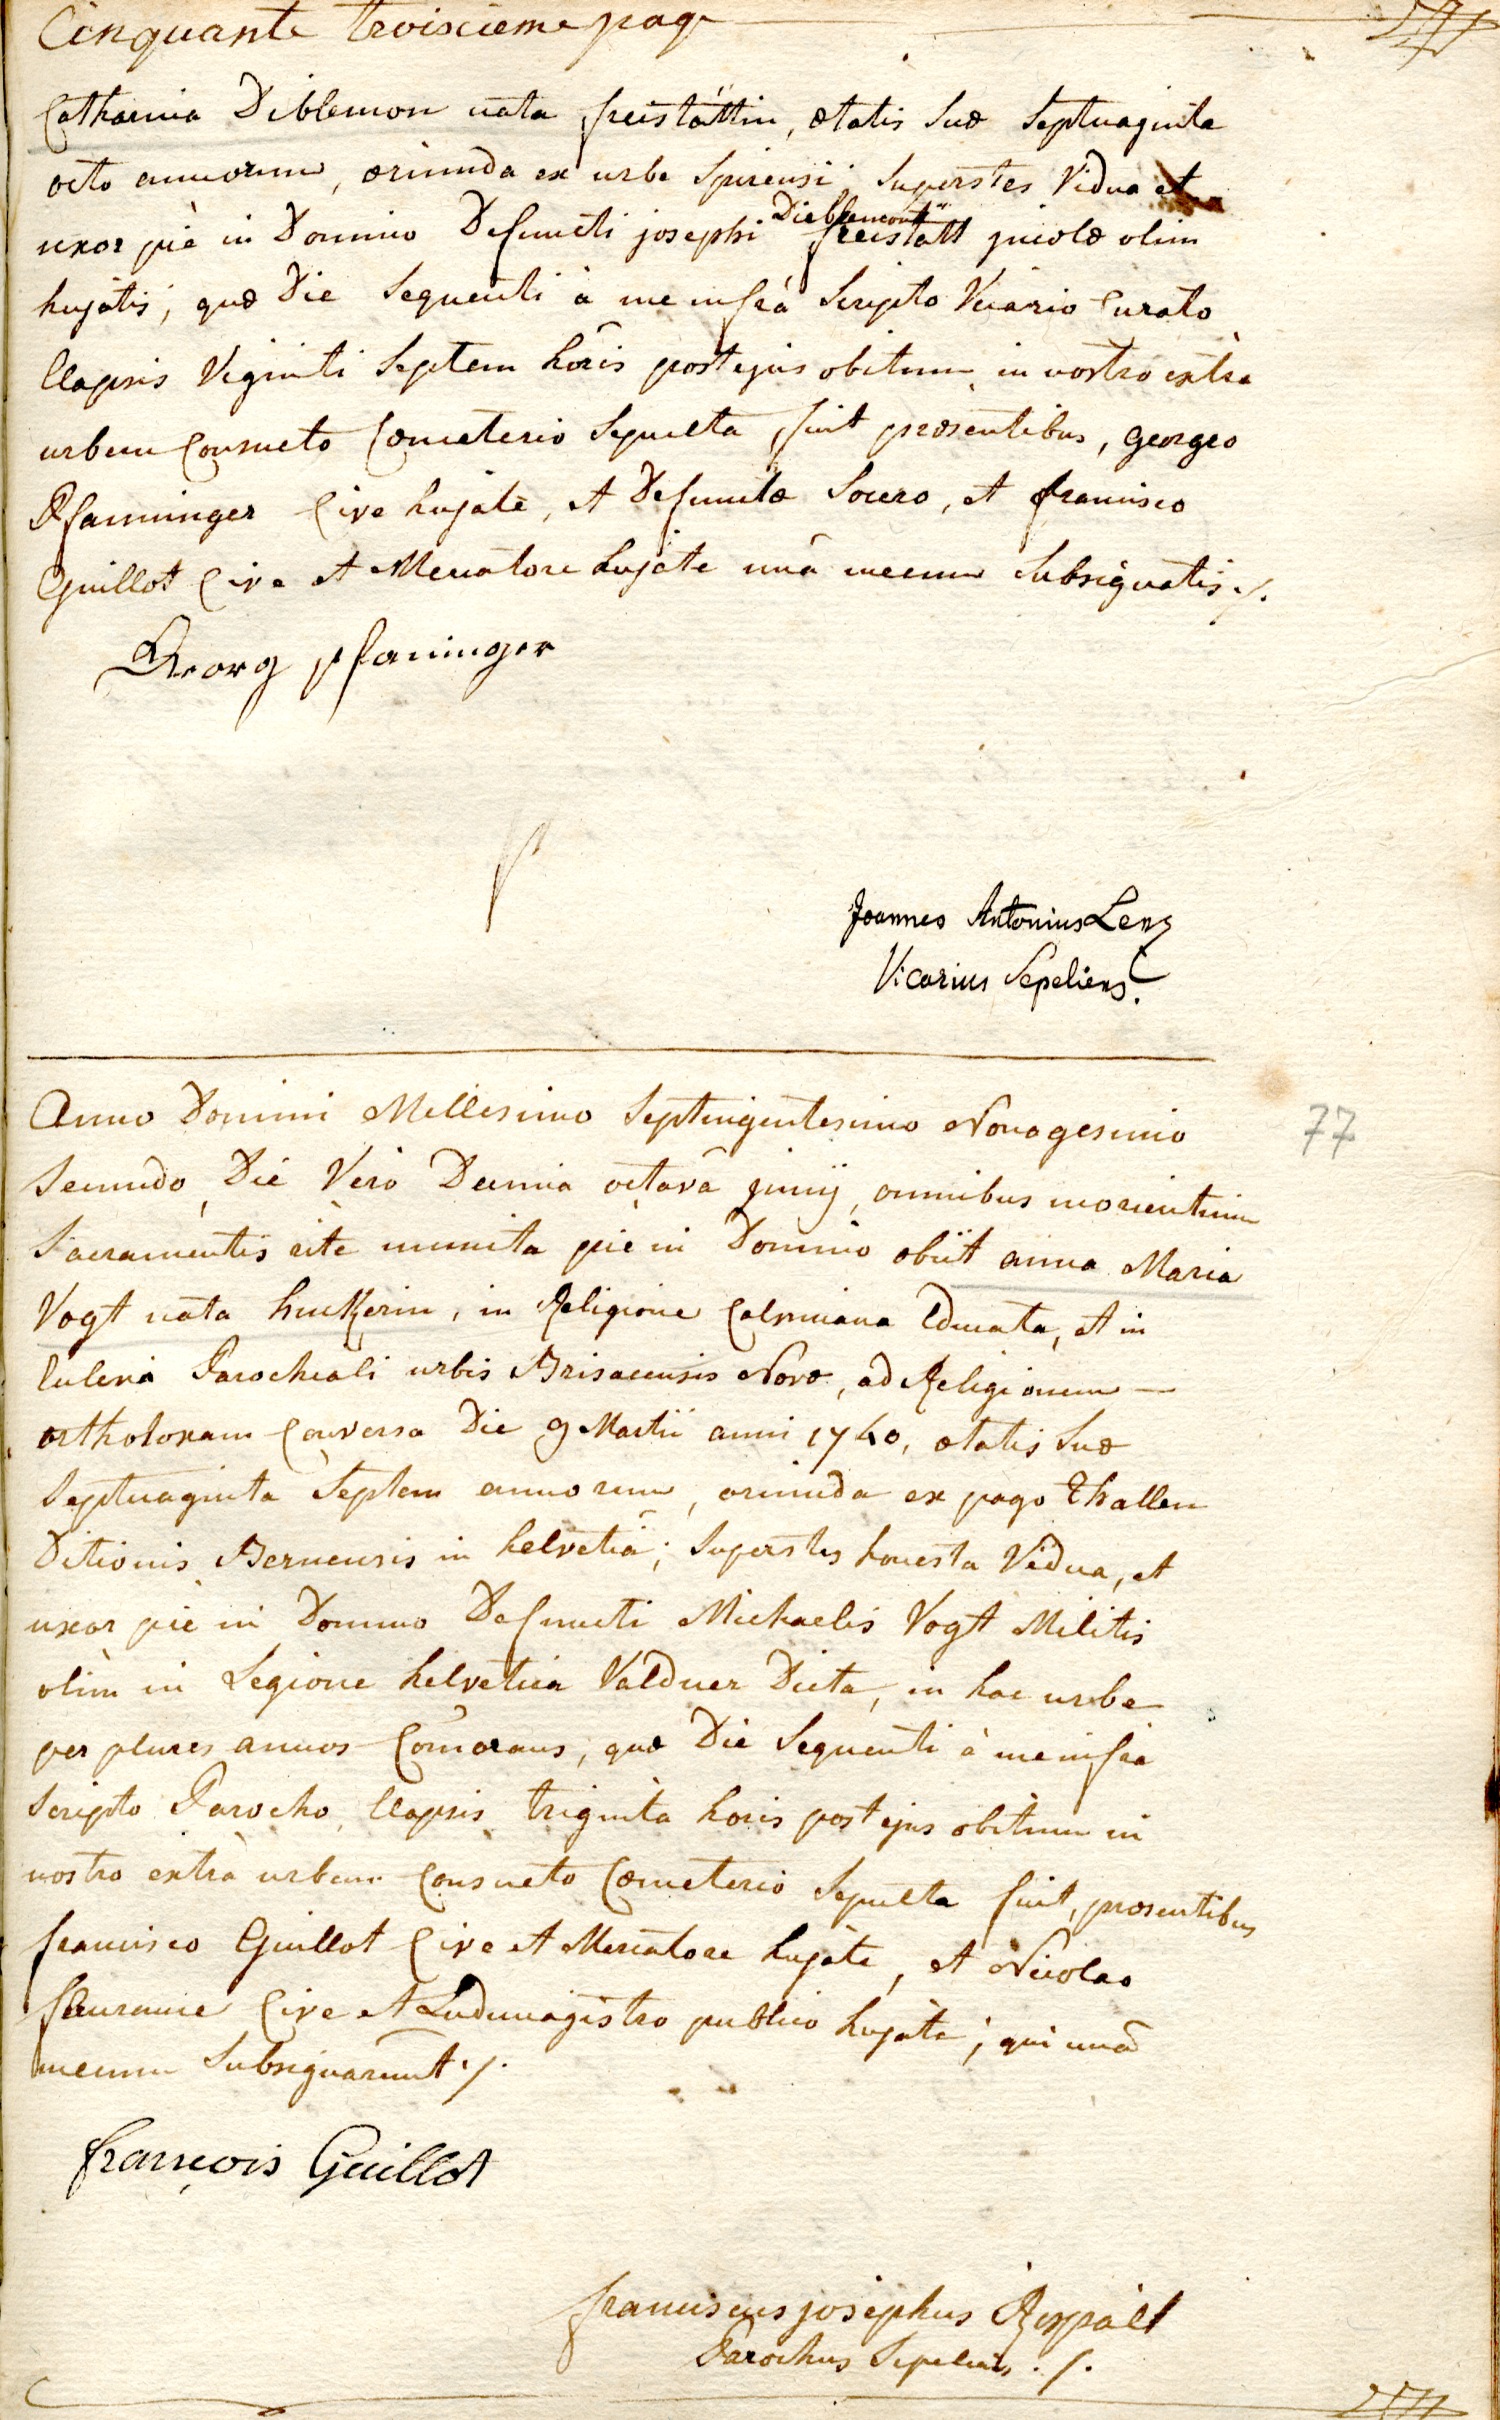 Cinquante troisiéeme page
Catharina Diblemon nata freistättin, ætatis suæ septuaginta
octo annorum, oriunda ex urbe Spirensi; superstes Vidua et
uxor piè in Domino Defuncti josephi Dieblemont freistätt incolæ olim
hujatis, quæ Die sequenti à me infrà scripto Vicario Curato
Elapsis Viginti septem horis post ejus obitum in nostro extra
urbem Consueto Cœmeterio sepulta fuit præsentibus, georgeo
Pfanninger Cive hujate, et Defunctæ Socero, et francisco
Guillot Cive et Mercatore hujate unâ mecum subsignatis ./.
Georg pfaninger
Joannes Antonius Lenz
Vicarius Sepeliens.
Anno Domini Millesimo septingentesimo Nonagesimo
77
secundo, Die Verò Decima octavâ junij, omnibus morientium
sacramentis ritè munita piè in Domino obiit anna Maria
Vogt nata huckerin, in Religione Calviniana Educata, et in
Eclesia Parochiali urbis Brisacensis Novæ, ad Religionem —
orthodoxam Conversa Die 9 Martii anni 1740, ætatis suæ
septuaginta septem annorum, oriunda ex pago Thallen
Ditionis Bernensis in helvetiâ; superstes honesta Vidua, et
uxor piè in Domino Defuncti Michaelis Vogt Militis
olim in Legione helvetica Valdner Dicta, in hac urbe
per plures annos Comorans, quæ Die sequenti à me infra
scripto Parocho, Elapsis triginta horis post ejus obitum in
nostro extrà urbem Consueto Cœmeterio sepulta fuit, præsentibus
francisco Guillot Cive et Mercatore hujate, et Nicolao
Cive et Ludimagistro publico hujate; qui unâ
mecum subsignarunt ./.
françois Guillot
franciscus josephus
Parochus Sepeliens ./.